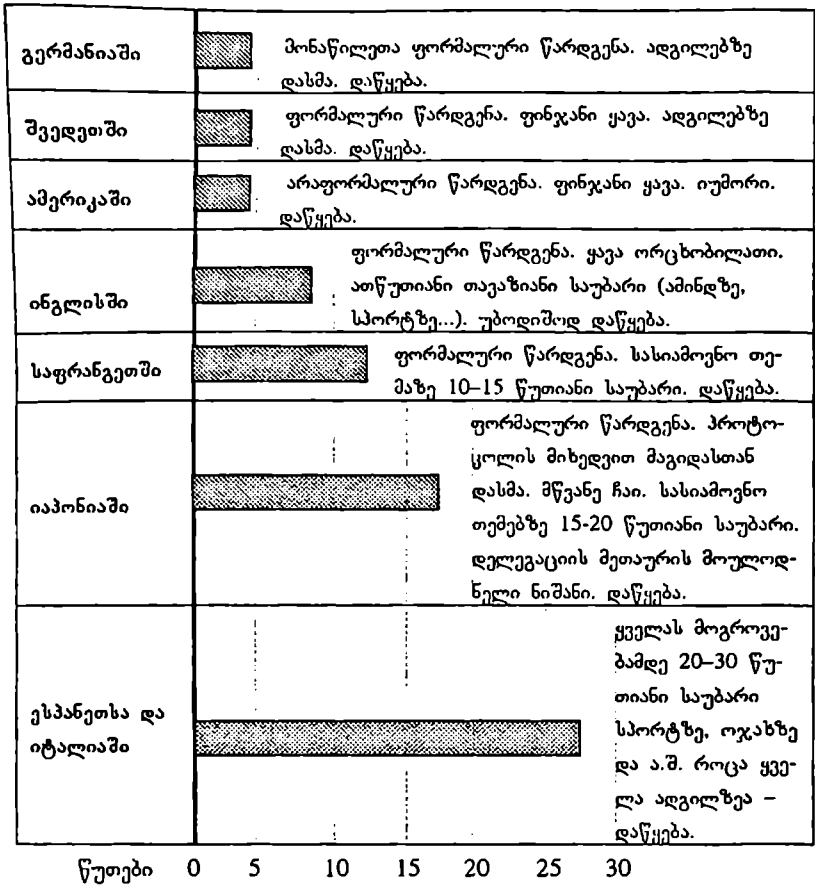 გერმანიაში
მონაწილეთა ფორმალური წარდგენა. ადგილებზე
დასმა. დაწყება.
შვედეთში
ფორმალური წარდგენა. ფინჯანი ყავა. ადგილებზე
დასმა. დაწყება.
ამერიკაში
არაფორმალური წარდგენა. ფინჯანი ყავა. იუმორი.
დაწყება.
ინგლისში
ფორმალური წარდგენა. ყავა ორცხობილათი.
ათწუთიანი თავაზიანი საუბარი (ამინდზე,
სპორტზე...). უბოდიშოდ დაწყება.
საფრანგეთში
ფორმალური წარდგენა. სასიამოვნო თე-
მაზე 10–15 წუთიანი საუბარი. დაწყება.
იაპონიაში
ფორმალური წარდგენა. პროტო-
კოლის მიხედვით მაგიდასთან
დასმა. მწვანე ჩაი. სასიამოვნო
თემებზე 15-20 წუთიანი საუბარი.
დელეგაციის მეთაურის მოულოდ-
ნელი ნიშანი. დაწყება.
ესპანეთსა და
იტალიაში
ყველას მოგროვე-
ბამდე 20–30 წუ-
თიანი საუბარი
სპორტზე, ოჯახზე
და ა.შ. როცა ყვე-
ლა ადგილზეა –
დაწყება.
წუთები 0 5 10 15 20 25 30